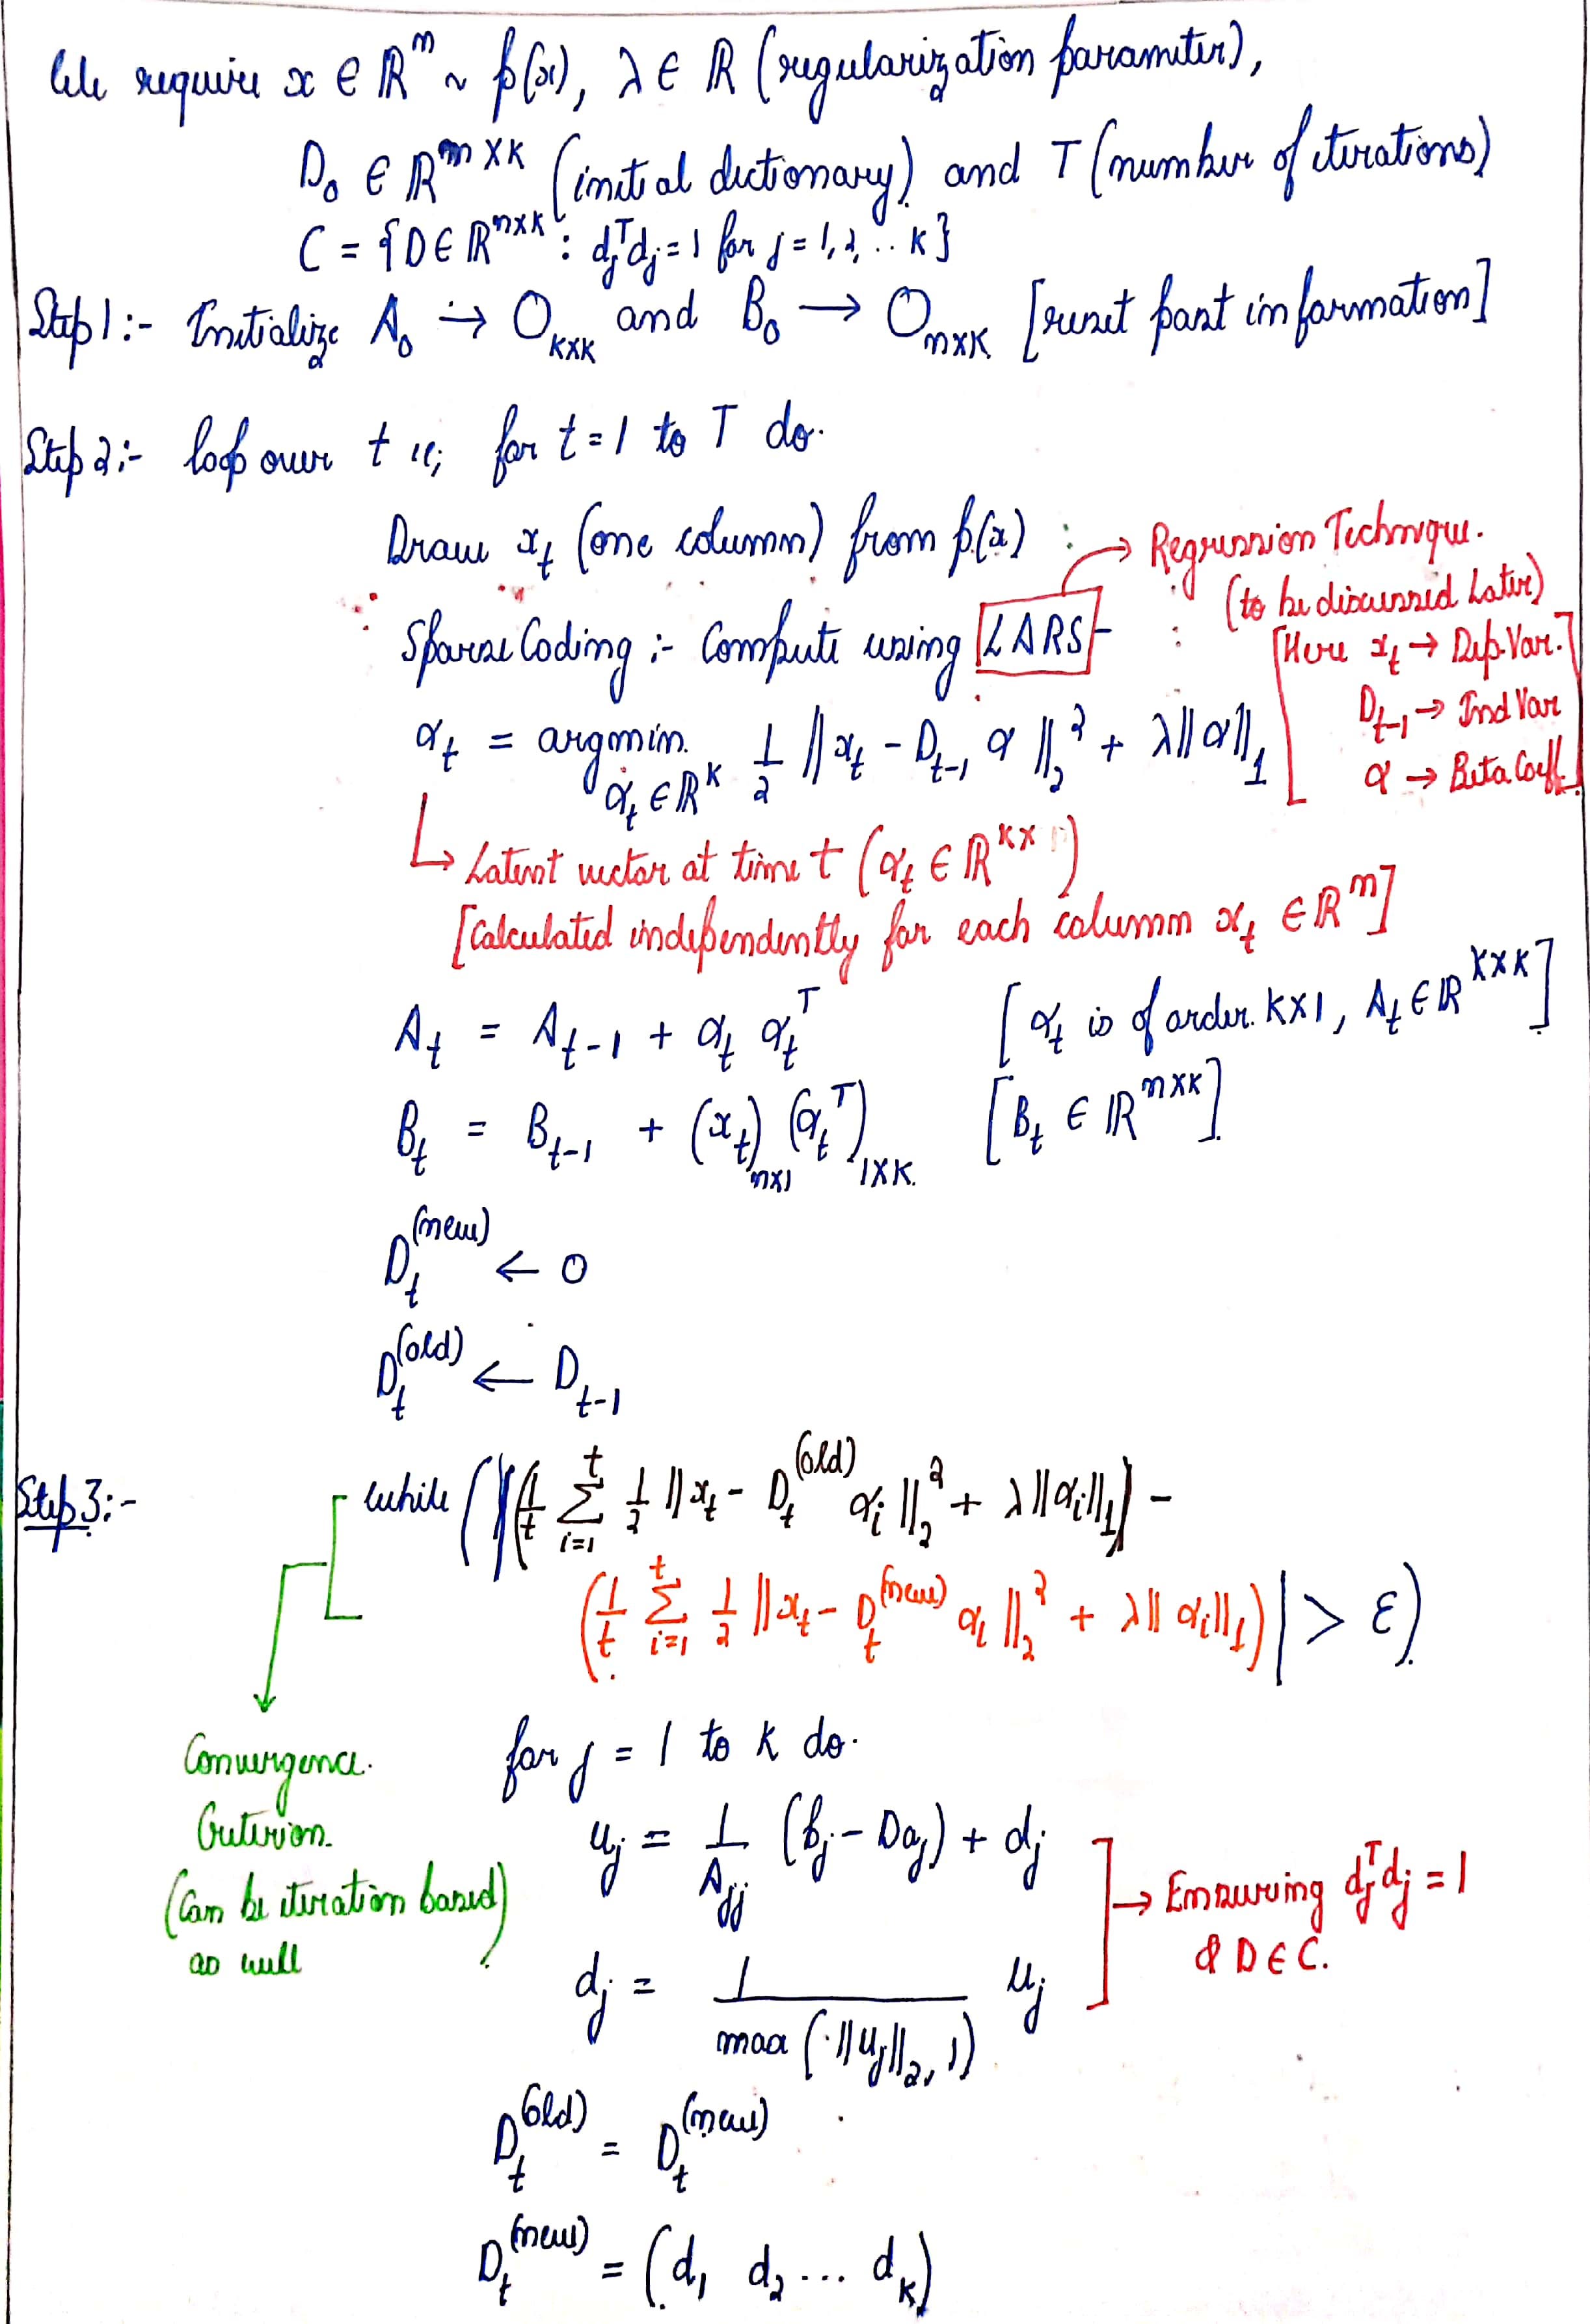 We require x ∈ ℝ^n ~ p(x), λ ∈ ℝ (regularization parameter),
D₀ ∈ ℝ^(m×K) (initial dictionary) and T (number of iterations)
C = {D ∈ ℝ^(n×K) : d_j^T d_j = 1 for j = 1, 2, .. K}
Step 1 :- Initialize A₀ → O_(K×K) and B₀ → O_(n×K) [reset past information]
Step 2 :- loop over t ie; for t = 1 to T do.
Draw x_t (one column) from p(x)
→ Regression Technique.
(to be discussed Later)
Sparse Coding :- Compute using LARS
[Here x_t → Dep. Var.
D_(t-1) → Ind Var
α → Beta Coeff.]
α_t = argmin_(α_t ∈ ℝ^K) 1/2 ||x_t - D_(t-1) α||₂² + λ||α||₁
↳ Latent vector at time t (α_t ∈ ℝ^(K×1))
[Calculated independently for each column x_t ∈ ℝ^n]
A_t = A_(t-1) + α_t α_t^T [α_t is of order. K×1, A_t ∈ ℝ^(K×K)]
B_t = B_(t-1) + (x_t)_(n×1) (α_t^T)_(1×K) [B_t ∈ ℝ^(n×K)]
D_t^(new) ← 0
D_t^(old) ← D_(t-1)
Step 3 :- while (|(1/t Σ_(i=1)^t 1/2 ||x_t - D_t^(old) α_i||₂² + λ||α_i||₁) -
(1/t Σ_(i=1)^t 1/2 ||x_t - D_t^(new) α_i||₂² + λ||α_i||₁)| > ε)
Convergence.
Criterion.
(Can be iteration based)
as well
for j = 1 to K do.
u_j = 1/A_jj (b_j - Da_j) + d_j
→ Ensuring d_j^T d_j = 1
& D ∈ C.
d_j = 1/max(||u_j||₂, 1) u_j
D_t^(old) = D_t^(new)
D_t^(new) = (d₁ d₂ ... d_K)